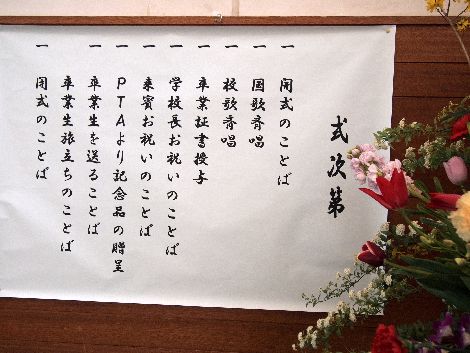 式次第
一 開式のことば
一 国歌斉唱
一 校歌斉唱
一 卒業証書授与
一 学校長お祝いのことば
一 来賓お祝いのことば
一 PTAより記念品の贈呈
一 卒業生を送ることば
一 卒業生旅立ちのことば
一 閉式のことば